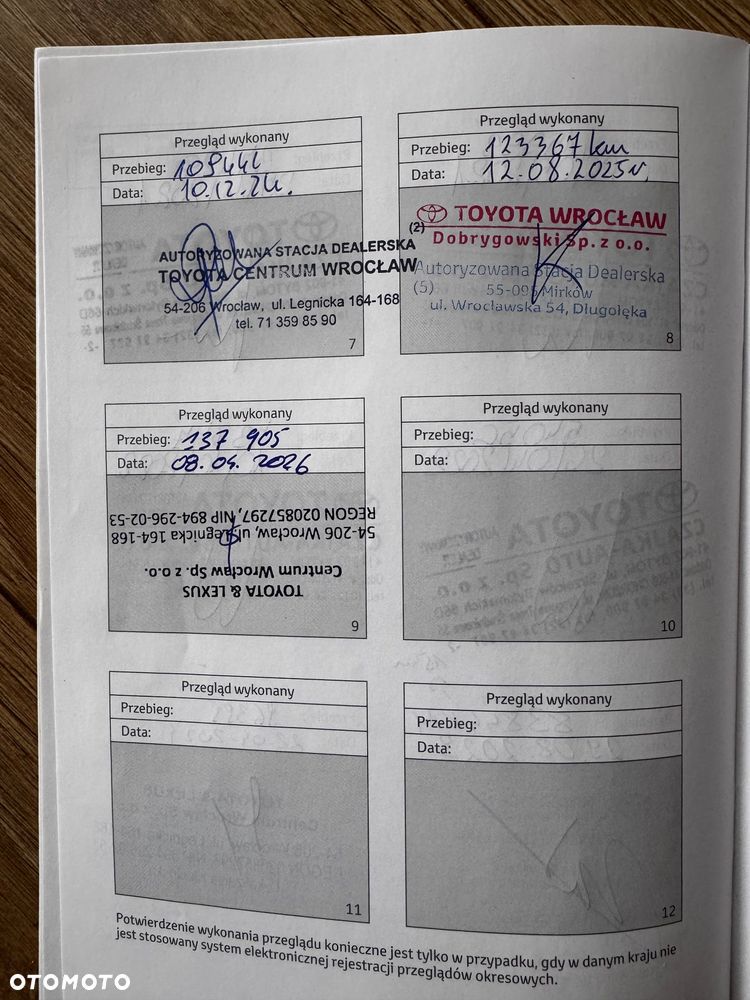 Przegląd wykonany
Przebieg: 109441
Data: 10.12.24.
AUTORYZOWANA STACJA DEALERSKA
TOYOTA CENTRUM WROCŁAW
54-206 Wrocław, ul. Legnicka 164-168
tel. 71 359 85 90
7
Przegląd wykonany
Przebieg: 123367 km
Data: 12.08.2025r.
(2)
TOYOTA WROCŁAW
Dobrygowski Sp. z o.o.
Autoryzowana Stacja Dealerska
(5) 55-095 Mirków
ul. Wrocławska 54, Długołęka
8
Przegląd wykonany
Przebieg: 137 905
Data: 08.04.2026
TOYOTA & LEXUS
Centrum Wrocław Sp. z o.o.
54-206 Wrocław, ul. Legnicka 164-168
REGON 020857297, NIP 894-296-02-53
9
Przegląd wykonany
Przebieg:
Data:
10
Przegląd wykonany
Przebieg:
Data:
11
Przegląd wykonany
Przebieg:
Data:
12
Potwierdzenie wykonania przeglądu konieczne jest tylko w przypadku, gdy w danym kraju nie
jest stosowany system elektronicznej rejestracji przeglądów okresowych.
OTOMOTO